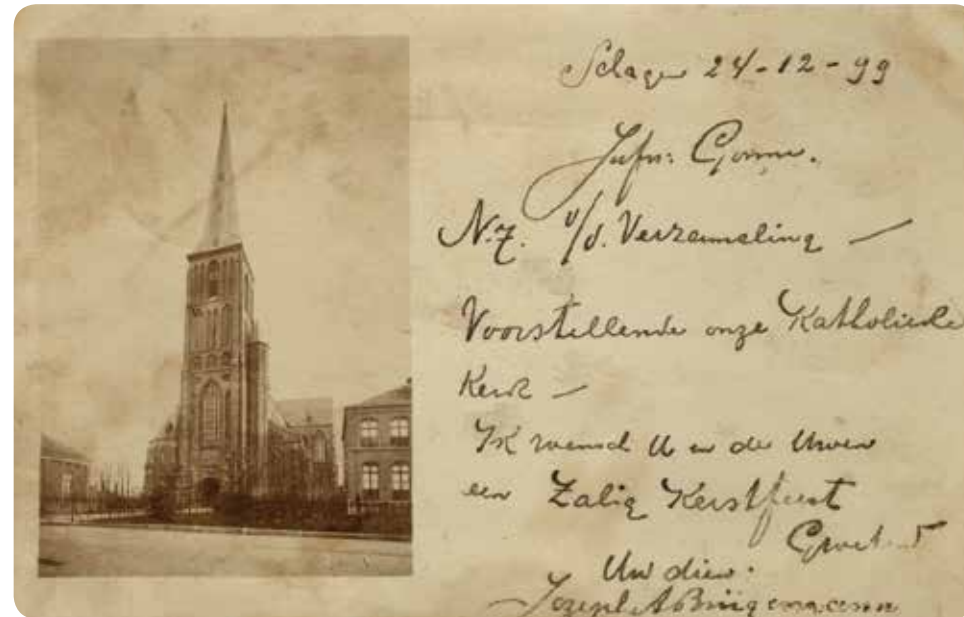 Schagen 24-12-99
Jufr:
N.Z. v/d. Verzameling —
Voorstellende onze Katholieke
Kerk —
Ik wensch U en de Uwen
een Zalig Kerstfeest
Groetend
Uw dien.
Joseph A